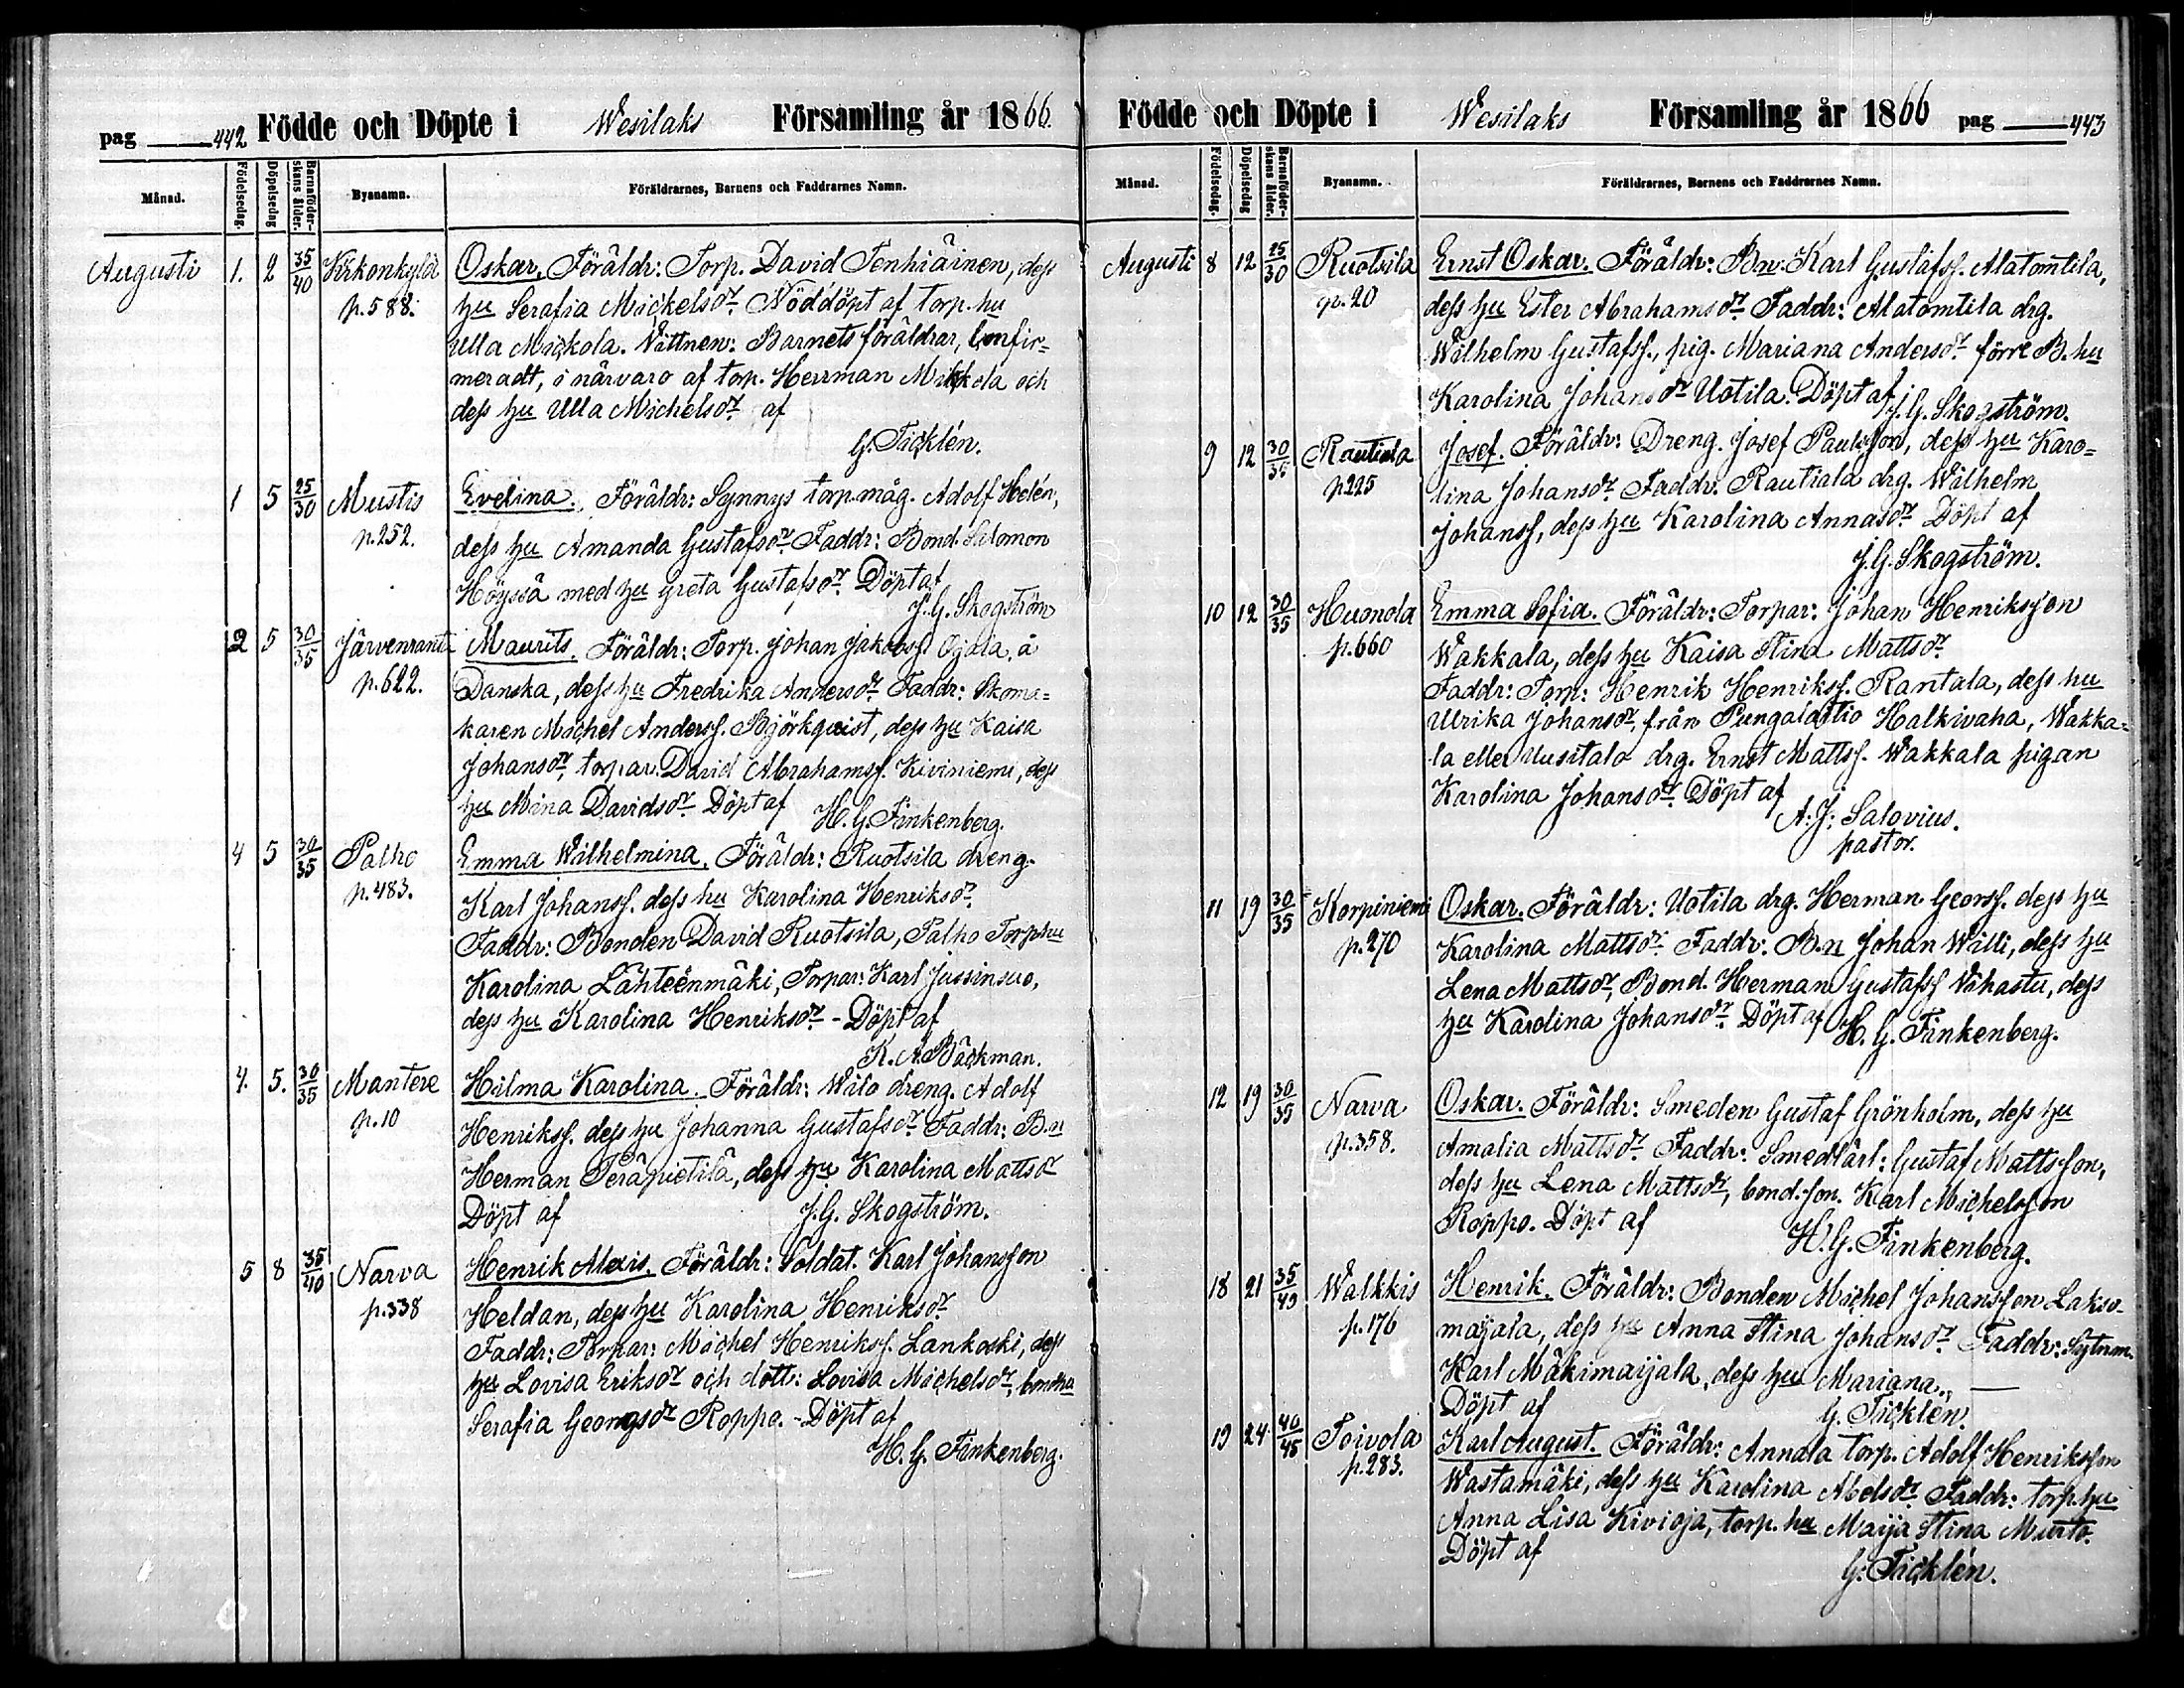 pag 442 Födde och Döpte i Wesilaks Församling år 1866.
Månad. Födelsedag. Döpelsedag Barnaföder-skans ålder. Byanamn. Föräldrarnes, Barnens och Faddrarnes Namn.
Augusti 1. 2 35/40 Kirkonkylä Oskar. Föräldr: Torp. David Tenhiäinen, dess
p. 588. hu Serafia Mickelsdr. Nöddöpt af torp. hu
Ulla Mickola. Vittnen: Barnets föräldrar, Confir=
meradt, i närvaro af torp. Herrman Mikkola och
dess hu Ulla Michelsdr. af
G. Ticklén.
1 5 25/30 Mustis Evelina. Föräldr: Synnys torp.måg. Adolf Helén,
p. 252. dess hu Amanda Gustafsdr. Faddr: Bond. Salomon
Höyssä med hu Greta Gustafsdr. Döpt af
J. G. Skogström
2 5 30/35 Järvenranta Maurits. Föräldr: Torp. Johan Jakobss. Ojala, å
p. 622. Danska, dess hu Fredrika Andersdr. Faddr: Skoma=
karen Michel Anderss. Björkqvist, dess hu Kaisa
Johansdr, torpar. David Abrahamss. Kiviniemi, dess
hu Mina Davidsdr. Döpt af H. G. Finkenberg.
4 5 30/35 Palho Emma Wilhelmina. Föräldr: Ruotsila dreng.
p. 483. Karl Johanss. dess hu Karolina Henriksdr.
Faddr: Bonden David Ruotsila, Palho Torp hu
Karolina Lähteenmäki, Torpar: Karl Jussinsuo,
dess hu Karolina Henriksdr. - Döpt af
K. A. Bäckman.
4. 5. 30/35 Mantere Hilma Karolina. Föräldr: Wilo dreng. Adolf
p. 10 Henrikss. dess hu Johanna Gustafsdr. Faddr: B.n
Herman Peräpietilä, dess hu Karolina Mattsdr
Döpt af J. G. Skogström.
5 8 35/40 Narva Henrik Alexis. Föräldr: Soldat. Karl Johansson
p. 338 Heldan, dess hu Karolina Henriksdr.
Faddr: Torpar: Michel Henrikss. Lankoski, dess
hu Lovisa Eriksdr och dott: Lovisa Michelsdr, bondhu
Serafia Georgsdr Roppo. - Döpt af
H. G. Finkenberg.
Födde och Döpte i Wesilaks Församling år 1866 pag 443
Månad. Födelsedag. Döpelsedag Barnaföder-skans ålder. Byanamn. Föräldrarnes, Barnens och Faddrarnes Namn.
Augusti 8 12 25/30 Ruotsila Ernst Oskar. Föräldr: Bn. Karl Gustafss. Alatomtila,
p. 20 dess hu Ester Abrahamsdr. Faddr: Alatomtila drg.
Wilhelm Gustafss., pig. Mariana Andersdr. förre B. hu
Karolina Johansdr Uotila. Döpt af J. G. Skogström.
9 12 30/35 Rautiala Josef. Föräldr: Dreng. Josef Paulsson, dess hu Karo=
p 225 lina Johansdr. Faddr: Rautiala drg. Wilhelm
Johanss, dess hu Karolina Annasdr. Döpt af
J. G. Skogström.
10 12 30/35 Huonola Emma Sofia. Föräldr: Torpar: Johan Henriksson
p. 660 Wakkala, dess hu Kaisa Stina Mattsdr.
Faddr: Torp: Henrik Henrikss. Rantala, dess hu
Ulrika Johansdr, från Pungalaitio Halkivaha, Wakka=
la eller Uusitalo drg. Ernst Mattss. Wakkala pigan
Karolina Johansdr. Döpt af
A. J. Salovius.
pastor.
11 19 30/35 Korpiniemi Oskar. Föräldr: Uotila drg. Herman Georss. dess hu
p. 270 Karolina Mattsdr. Faddr: B.n Johan Willi, dess hu
Lena Mattsdr, Bond. Herman Gustafss Vihastu, dess
hu Karolina Johansdr. Döpt af H. G. Finkenberg.
12 19 30/35 Narva Oskar. Föräldr: Smeden Gustaf Grönholm, dess hu
p. 358. Amalia Mattsdr. Faddr: Smedlärl: Gustaf Mattsson,
dess hu Lena Mattsdr, bond.son. Karl Michelsson
Roppo. Döpt af H. G. Finkenberg.
18 21 35/40 Walkkis Henrik. Föräldr: Bonden Michel Johansson Lakso-
p. 176 maijala, dess hu Anna Stina Johansdr. Faddr: Sytnm.
Karl Mäkimaijala, dess hu Mariana.
Döpt af G. Ticklén.
19 24 40/45 Toivola Karl August. Föräldr: Annala torp. Adolf Henriksson
p. 283. Wastamäki, dess hu Karolina Abelsdr. Faddr: torp hu
Anna Lisa Kivioja, torp. hu Maija Stina Murto.
Döpt af
G. Ticklén.